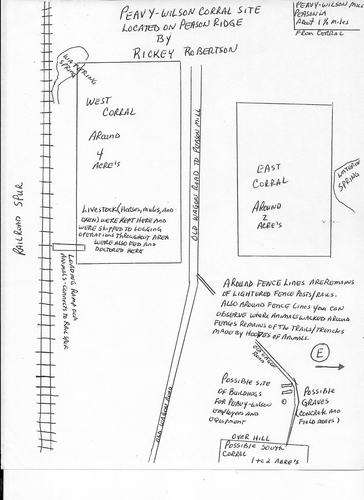 PEAVY-WILSON CORRAL SITE
LOCATED ON PEASON RIDGE
BY
RICKEY ROBERTSON
PEAVY-WILSON MILL
PEASON LA
About 1 1/2 miles
From CORRAL
WATERING
SPRING
WEST
CORRAL
AROUND
4
ACRE'S
LIVESTOCK (HORSES, MULES, AND
OXEN) WERE KEPT HERE AND
WERE SHIPPED TO LOGGING
OPERATIONS THROUGHOUT AREA
WERE ALSO FED AND
DOCTORED HERE
RAILROAD SPUR
LOADING RAMP FOR
ANIMALS-CONNECTS TO RAIL SPUR
OLD WAGON ROAD TO PEASON MILL
EAST
CORRAL
AROUND
2
ACRE'S
WATERING
SPRING
AROUND FENCE LINES ARE REMAINS
OF LIGHTERED FENCE POSTS/RAILS.
ALSO AROUND FENCE LINES YOU CAN
OBSERVE WHERE ANIMALS WALKED AROUND
FENCES REMAINS OF THE TRAILS/TRENCHES
MADE BY HOOVES OF ANIMALS.
E
ROAD
POSSIBLE SITE
OF BUILDINGS
FOR PEAVY-WILSON
EMPLOYEES AND
EQUIPMENT
POSSIBLE
GRAVES
(CONCRETE AND
FIELD STONES)
OLD WAGON ROAD
OVER HILL
POSSIBLE SOUTH
CORRAL
1 TO 2 ACRE'S